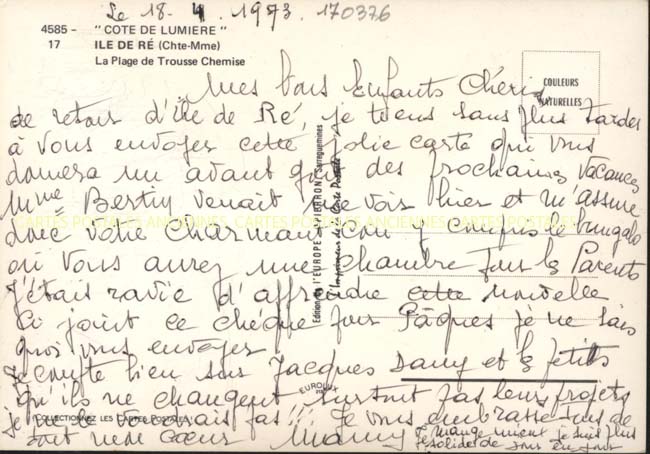 Le 18-4.1973 170376
4585 - "COTE DE LUMIERE"
17 ILE DE RÉ (Chte-Mme)
La Plage de Trousse Chemise
COULEURS
NATURELLES
Mes bons Enfants Chéris
de retour d'Ile de Ré, je tiens sans plus tarder
à vous envoyer cette jolie carte qui vous
donnera un avant goût des prochaines vacances
Mme Bertin venait me voir hier et m'assure
CARTES POSTALES ANCIENNES CARTES POSTALES
donc votre charmant coin y compris le bungalo
où vous aurez une chambre pour les Parents
j'étais ravie d'apprendre cette nouvelle
Ci joint ce chèque pour Pâques je ne sais
quoi vous envoyer
Je compte bien sur Jacques Dany et les petits
qu'ils ne changent surtout pas leurs projets
je ne pas !!! Je vous embrasse de
tout mon cœur Mamy je mange mieux je suis plus
solide de jour en jour
Edition de l'EUROPE PIERRON Sarreguemines
l'Imprimeur de la Carte Postale
EUROLUX
COLLECTIONNEZ LES CARTES POSTALES